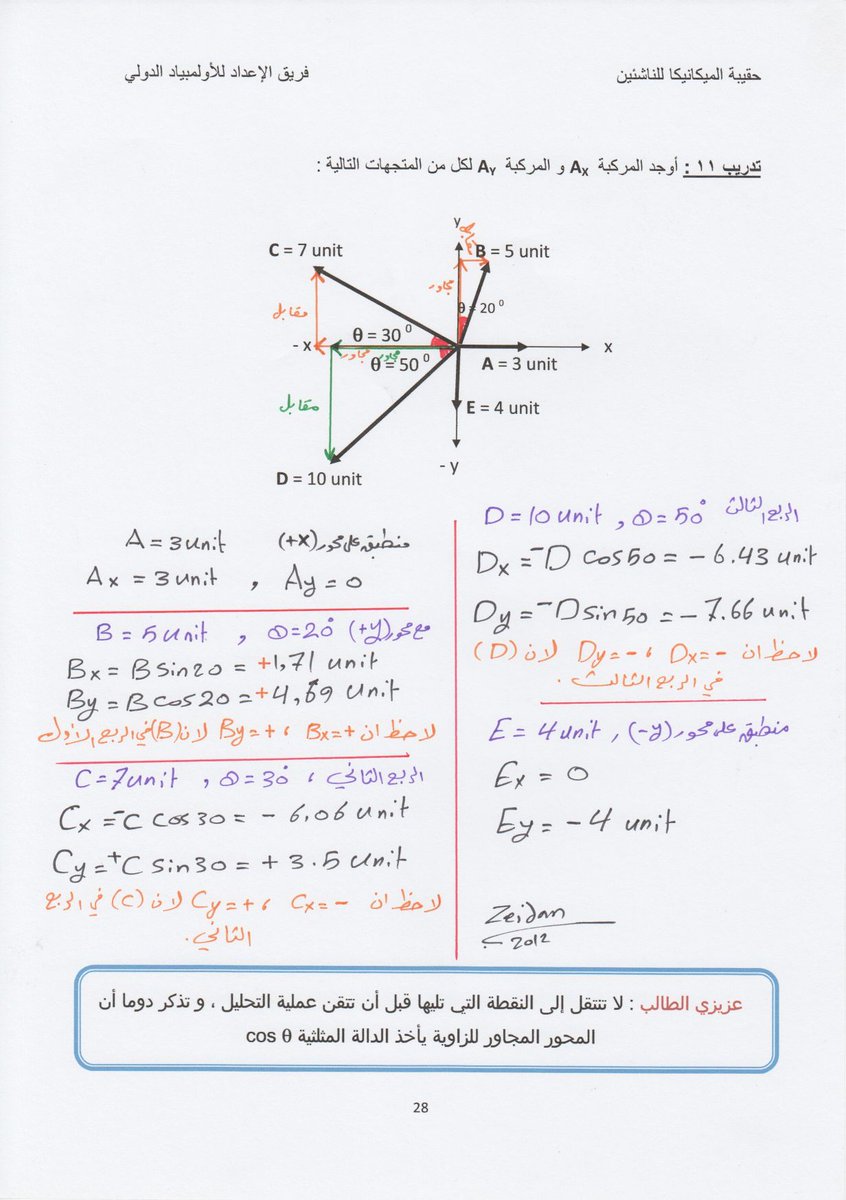 حقيبة الميكانيكا للناشئين
فريق الإعداد للأولمبياد الدولي
تدريب ١١ : أوجد المركبة Aₓ و المركبة Aᵧ لكل من المتجهات التالية :
y
C = 7 unit
B = 5 unit
مقابل
مجاور
θ = 20 ⁰
مقابل
θ = 30 ⁰
- x
x
مجاور
مجاور
θ = 50 ⁰
A = 3 unit
مقابل
E = 4 unit
- y
D = 10 unit
A = 3 unit منطبق على محور (+x)
Ax = 3 unit , Ay = 0
B = 5 unit , θ = 20° مع محور (+y)
Bx = B sin20 = +1,71 unit
By = B cos20 = +4,69 unit
لاحظ ان Bx = + ، By = + لان (B) في الربع الأول
C = 7 unit , θ = 30° ، الربع الثاني
Cx = -C cos30 = - 6,06 unit
Cy = +C sin30 = + 3.5 unit
لاحظ ان Cx = - ، Cy = + لان (C) في الربع
الثاني.
D = 10 unit , θ = 50° الربع الثالث
Dx = -D cos50 = - 6.43 unit
Dy = -D sin50 = - 7.66 unit
لاحظ ان Dx = - ، Dy = - لان (D)
في الربع الثالث.
E = 4 unit , منطبق على محور (-y)
Ex = 0
Ey = - 4 unit
Zeidan
2012
عزيزي الطالب : لا تنتقل إلى النقطة التي تليها قبل أن تتقن عملية التحليل ، و تذكر دوما أن
المحور المجاور للزاوية يأخذ الدالة المثلثية cos θ
28